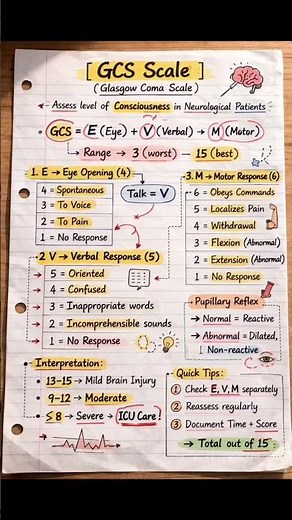 [ GCS Scale ]
(Glasgow Coma Scale)
Assess level of Consciousness in Neurological Patients
• GCS = E (Eye) + V (Verbal) → M (Motor)
→ Range → 3 (worst) – 15 (best)
1. E → Eye Opening (4)
4 = Spontaneous
3 = To Voice
2 = To Pain
1 = No Response
Talk = V
3. M → Motor Response (6)
6 = Obeys Commands
5 = Localizes Pain
4 = Withdrawal
3 = Flexion (Abnormal)
2 = Extension (Abnormal)
1 = No Response
2 V → Verbal Response (5)
→ 5 = Oriented
→ 4 = Confused
→ 3 = Inappropriate words
→ 2 = Incomprehensible sounds
→ 1 = No Response
Pupillary Reflex
→ Normal = Reactive
→ Abnormal = Dilated,
Non-reactive
Interpretation:
• 13-15 → Mild Brain Injury
• 9-12 → Moderate
• ≤ 8 → Severe → ICU Care!
Quick Tips:
1 Check E, V, M separately
2 Reassess regularly
3 Document Time + Score
→ Total out of 15